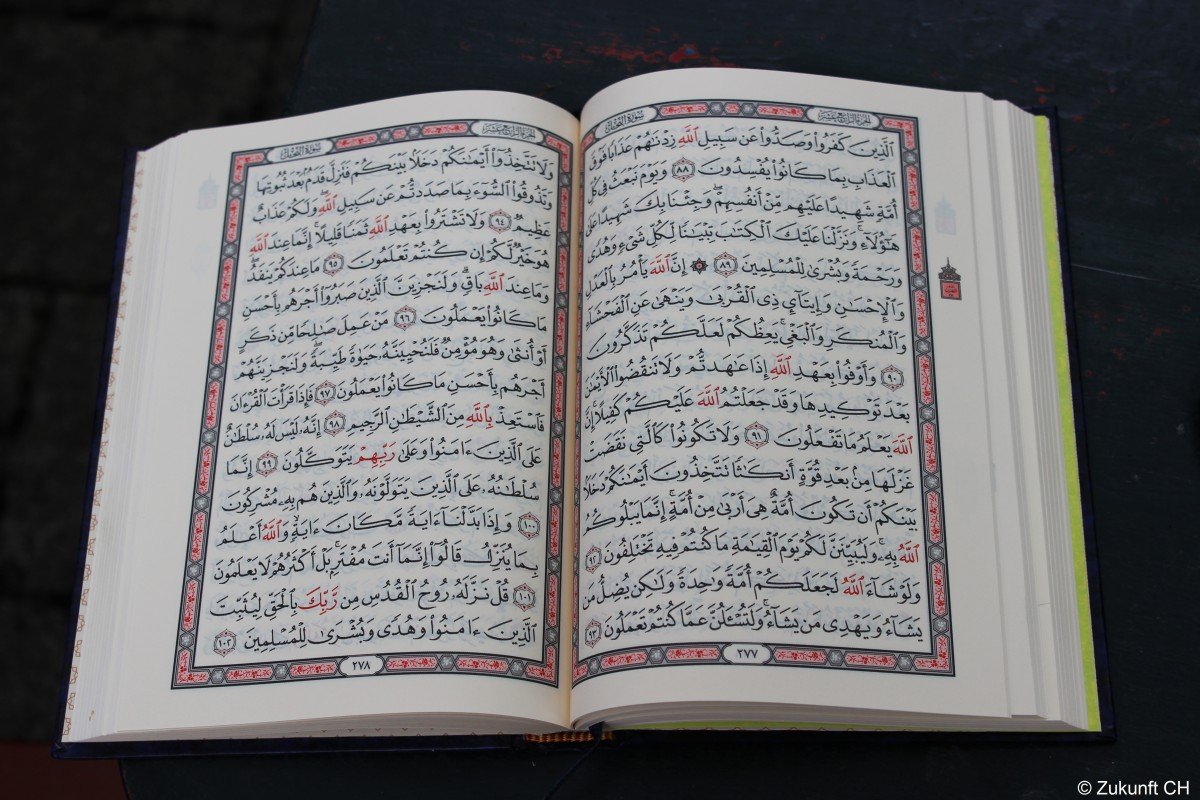 الجزء الرابع عشر
سورة النحل
ٱلَّذِينَ كَفَرُوا۟ وَصَدُّوا۟ عَن سَبِيلِ ٱللَّهِ زِدْنَـٰهُمْ عَذَابًا فَوْقَ
ٱلْعَذَابِ بِمَا كَانُوا۟ يُفْسِدُونَ ٨٨ وَيَوْمَ نَبْعَثُ فِى كُلِّ
أُمَّةٍ شَهِيدًا عَلَيْهِم مِّنْ أَنفُسِهِمْ ۖ وَجِئْنَا بِكَ شَهِيدًا عَلَىٰ
هَـٰٓؤُلَآءِ ۚ وَنَزَّلْنَا عَلَيْكَ ٱلْكِتَـٰبَ تِبْيَـٰنًا لِّكُلِّ شَىْءٍ وَهُدًى
وَرَحْمَةً وَبُشْرَىٰ لِلْمُسْلِمِينَ ٨٩ ۞ إِنَّ ٱللَّهَ يَأْمُرُ بِٱلْعَدْلِ
وَٱلْإِحْسَـٰنِ وَإِيتَآئِ ذِى ٱلْقُرْبَىٰ وَيَنْهَىٰ عَنِ ٱلْفَحْشَآءِ
وَٱلْمُنكَرِ وَٱلْبَغْىِ ۚ يَعِظُكُمْ لَعَلَّكُمْ تَذَكَّرُونَ
٩٠ وَأَوْفُوا۟ بِعَهْدِ ٱللَّهِ إِذَا عَـٰهَدتُّمْ وَلَا تَنقُضُوا۟ ٱلْأَيْمَـٰنَ
بَعْدَ تَوْكِيدِهَا وَقَدْ جَعَلْتُمُ ٱللَّهَ عَلَيْكُمْ كَفِيلًا ۚ إِنَّ
ٱللَّهَ يَعْلَمُ مَا تَفْعَلُونَ ٩١ وَلَا تَكُونُوا۟ كَٱلَّتِى نَقَضَتْ
غَزْلَهَا مِنۢ بَعْدِ قُوَّةٍ أَنكَـٰثًا تَتَّخِذُونَ أَيْمَـٰنَكُمْ دَخَلًۢا
بَيْنَكُمْ أَن تَكُونَ أُمَّةٌ هِىَ أَرْبَىٰ مِنْ أُمَّةٍ ۚ إِنَّمَا يَبْلُوكُمُ
ٱللَّهُ بِهِۦ ۚ وَلَيُبَيِّنَنَّ لَكُمْ يَوْمَ ٱلْقِيَـٰمَةِ مَا كُنتُمْ فِيهِ تَخْتَلِفُونَ ٩٢
وَلَوْ شَآءَ ٱللَّهُ لَجَعَلَكُمْ أُمَّةً وَٰحِدَةً وَلَـٰكِن يُضِلُّ مَن
يَشَآءُ وَيَهْدِى مَن يَشَآءُ ۚ وَلَتُسْـَٔلُنَّ عَمَّا كُنتُمْ تَعْمَلُونَ ٩٣
٢٧٧
الجزء الرابع عشر
سورة النحل
وَلَا تَتَّخِذُوٓا۟ أَيْمَـٰنَكُمْ دَخَلًۢا بَيْنَكُمْ فَتَزِلَّ قَدَمٌۢ بَعْدَ ثُبُوتِهَا
وَتَذُوقُوا۟ ٱلسُّوٓءَ بِمَا صَدَدتُّمْ عَن سَبِيلِ ٱللَّهِ ۖ وَلَكُمْ عَذَابٌ
عَظِيمٌ ٩٤ وَلَا تَشْتَرُوا۟ بِعَهْدِ ٱللَّهِ ثَمَنًا قَلِيلًا ۚ إِنَّمَا عِندَ ٱللَّهِ
هُوَ خَيْرٌ لَّكُمْ إِن كُنتُمْ تَعْلَمُونَ ٩٥ مَا عِندَكُمْ يَنفَدُ ۖ
وَمَا عِندَ ٱللَّهِ بَاقٍ ۗ وَلَنَجْزِيَنَّ ٱلَّذِينَ صَبَرُوٓا۟ أَجْرَهُم بِأَحْسَنِ
مَا كَانُوا۟ يَعْمَلُونَ ٩٦ مَنْ عَمِلَ صَـٰلِحًا مِّن ذَكَرٍ
أَوْ أُنثَىٰ وَهُوَ مُؤْمِنٌ فَلَنُحْيِيَنَّهُۥ حَيَوٰةً طَيِّبَةً ۖ وَلَنَجْزِيَنَّهُمْ
أَجْرَهُم بِأَحْسَنِ مَا كَانُوا۟ يَعْمَلُونَ ٩٧ فَإِذَا قَرَأْتَ ٱلْقُرْءَانَ
فَٱسْتَعِذْ بِٱللَّهِ مِنَ ٱلشَّيْطَـٰنِ ٱلرَّجِيمِ ٩٨ إِنَّهُۥ لَيْسَ لَهُۥ سُلْطَـٰنٌ
عَلَى ٱلَّذِينَ ءَامَنُوا۟ وَعَلَىٰ رَبِّهِمْ يَتَوَكَّلُونَ ٩٩ إِنَّمَا
سُلْطَـٰنُهُۥ عَلَى ٱلَّذِينَ يَتَوَلَّوْنَهُۥ وَٱلَّذِينَ هُم بِهِۦ مُشْرِكُونَ
١٠٠ وَإِذَا بَدَّلْنَآ ءَايَةً مَّكَانَ ءَايَةٍ ۙ وَٱللَّهُ أَعْلَمُ
بِمَا يُنَزِّلُ قَالُوٓا۟ إِنَّمَآ أَنتَ مُفْتَرٍۭ ۚ بَلْ أَكْثَرُهُمْ لَا يَعْلَمُونَ
١٠١ قُلْ نَزَّلَهُۥ رُوحُ ٱلْقُدُسِ مِن رَّبِّكَ بِٱلْحَقِّ لِيُثَبِّتَ
ٱلَّذِينَ ءَامَنُوا۟ وَهُدًى وَبُشْرَىٰ لِلْمُسْلِمِينَ ١٠٢
٢٧٨
© Zukunft CH